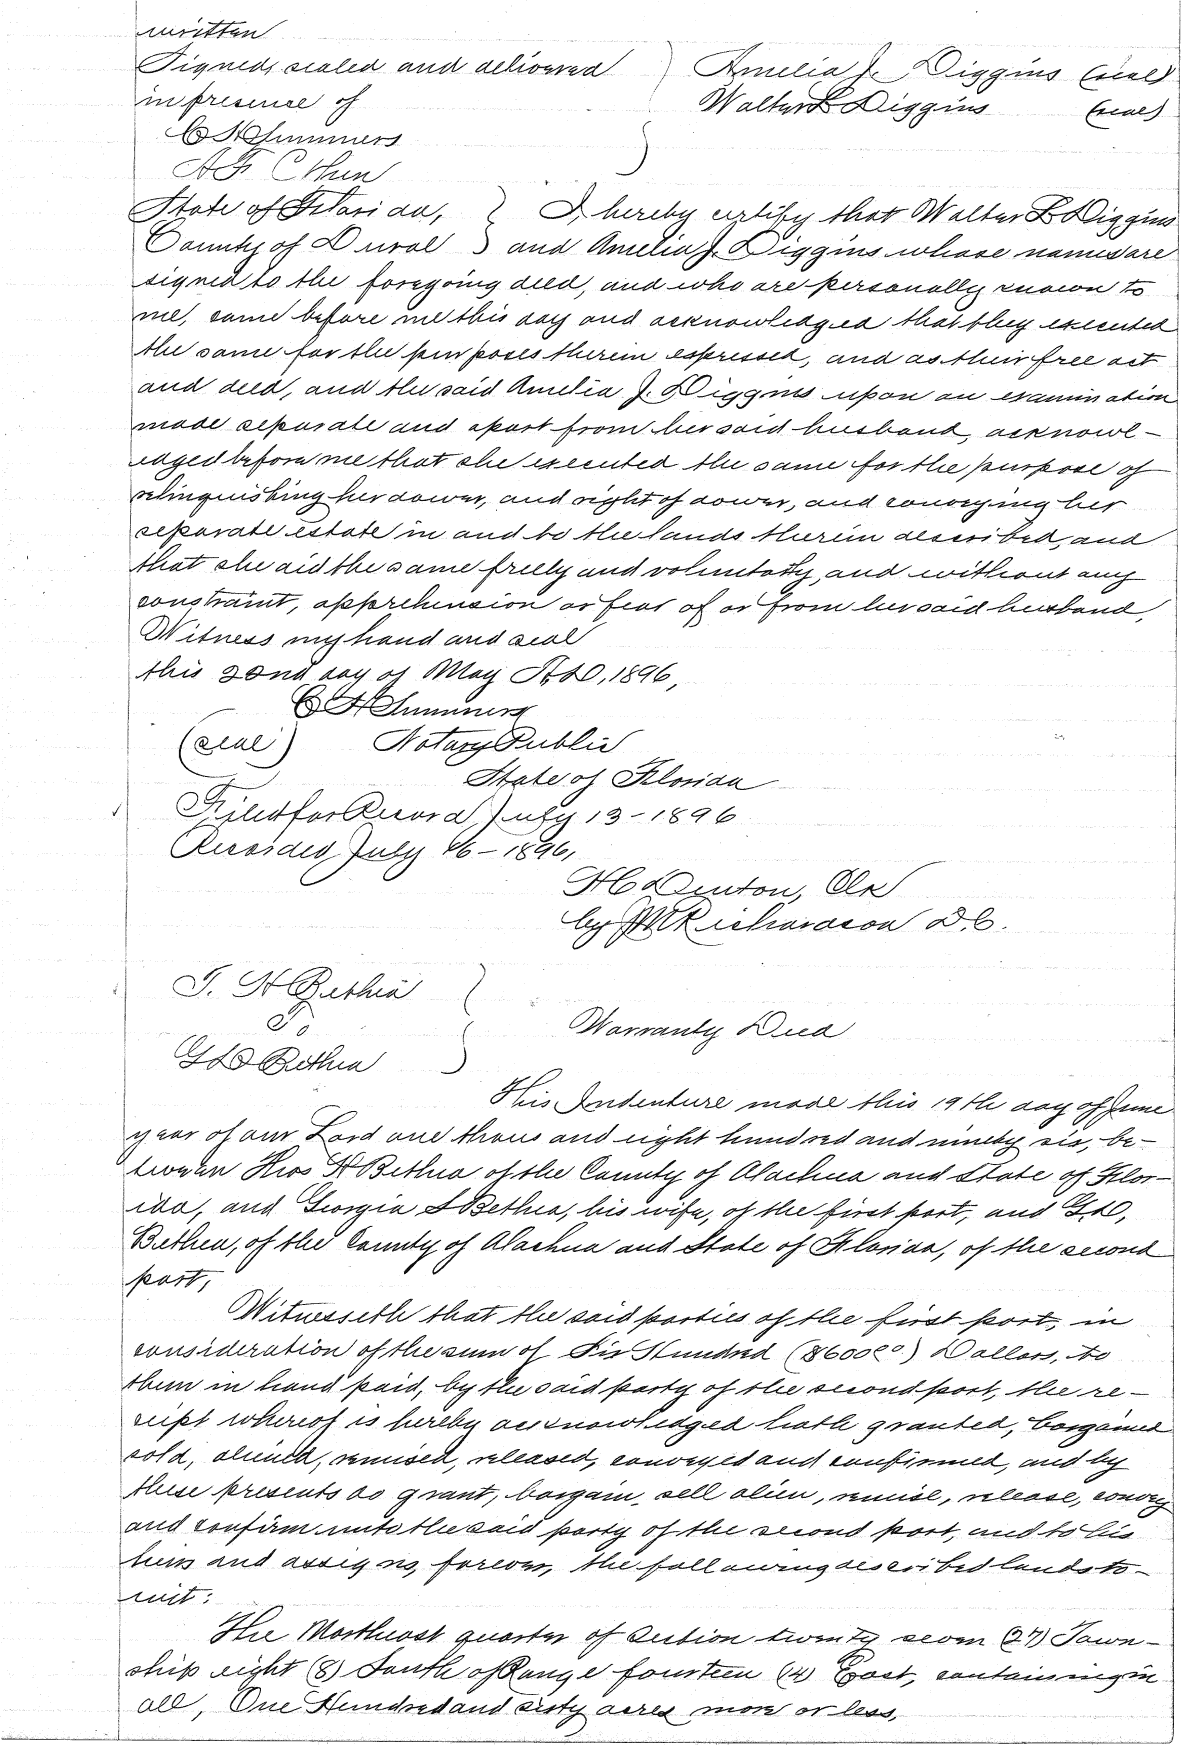 written
Signed, sealed and delivered Amelia J. Diggins (seal)
in presence of Walter L Diggins (seal)
C H Summers
A F
State of Florida, I, hereby certify that Walter L Diggins
County of Duval and Amelia J. Diggins whose names are
signed to the foregoing deed, and who are personally known to
me, came before me this day and acknowledged that they executed
the same for the purposes therein expressed, and as their free act
and deed, and the said Amelia J. Diggins upon an examination
made separate and apart from her said husband, acknowl-
edged before me that she executed the same for the purpose of
relinquishing her dower, and right of dower, and conveying her
separate estate in and to the lands therein described, and
that she did the same freely and voluntaty, and without any
constraint, apprehension or fear of or from her said husband,
Witness my hand and seal
this 22nd day of May A.D, 1896,
C H Summers
(seal) Notary Public
State of Florida
Filed for Record July 13-1896
Recorded July 16-1896,
H C Denton, Clk
by J M Richardson D.C.
T. H Bethea
To Warranty Deed
G D Bethea
This Indenture made this 19th day of June
year of our Lord one thousand eight hundred and ninety six, be-
tween H Bethea of the County of Alachua and State of Flor-
ida, and Georgia Bethea, his wife, of the first part, and G.D,
Bethea, of the County of Alachua and State of Florida, of the second
part,
Witnesseth that the said parties of the first part, in
consideration of the sum of Six Hundred ($600.00) Dollars, to
them in hand paid, by the said party of the second part, the re-
ceipt whereof is hereby acknowledged hath granted, bargained
sold, aliened, remised, released, conveyed and confirmed, and by
these presents do grant, bargain, sell alien, remise, release, convey
and confirm unto the said party of the second part, and to his
heirs and assigns, forever, the following described lands to-
wit:
The Northeast quarter of Section twenty seven (27) Town-
ship eight (8) South of Range fourteen (14) East, containing in
all, One Hundred and sixty acres more or less,